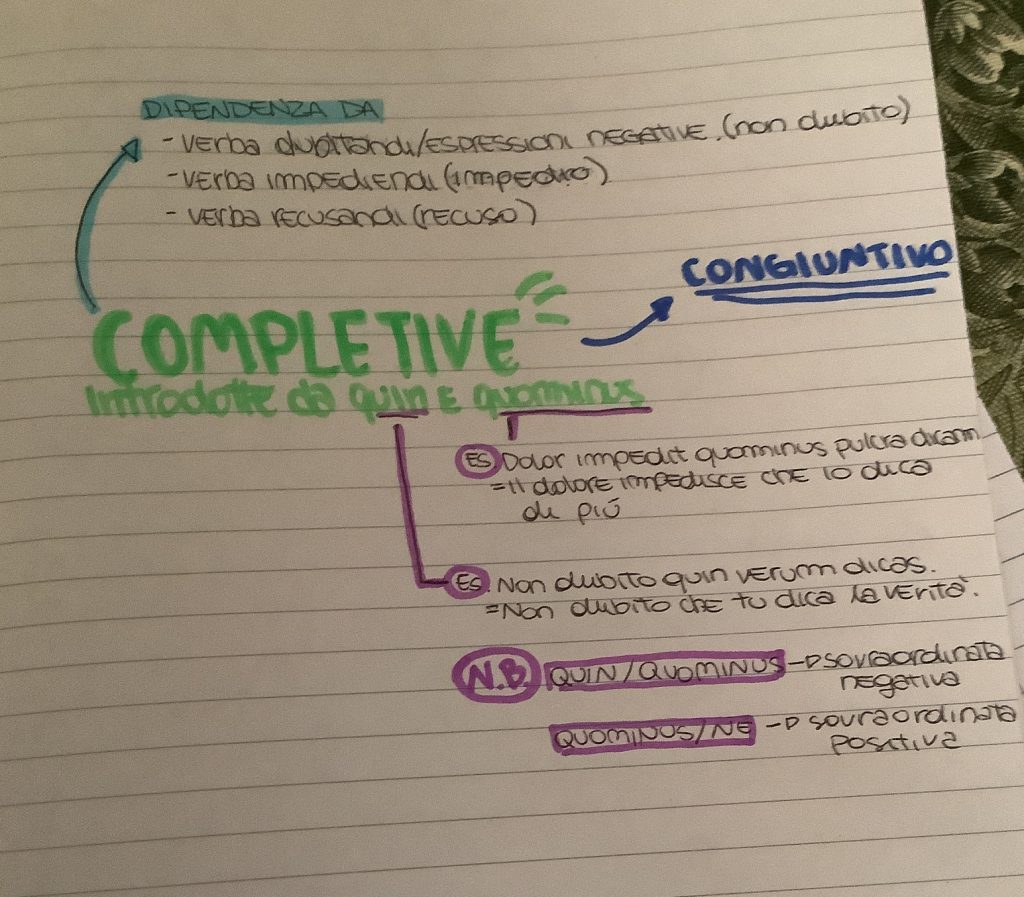 DIPENDENZA DA
- VERBA DUBITANDI/ESPRESSIONI NEGATIVE. (NON DUBITO)
- VERBA IMPEDIENDI (IMPEDIO)
- VERBA RECUSANDI (RECUSO)
CONGIUNTIVO
COMPLETIVE
Introdotte da quin e quominus
ES. Dolor impedit quominus pulcra dicam
= Il dolore impedisce che io dica
di più
ES. Non dubito quin verum dicas.
= Non dubito che tu dica la verità.
N.B. QUIN/QUOMINUS → sovraordinata
negativa
QUOMINUS/NE → sovraordinata
positiva